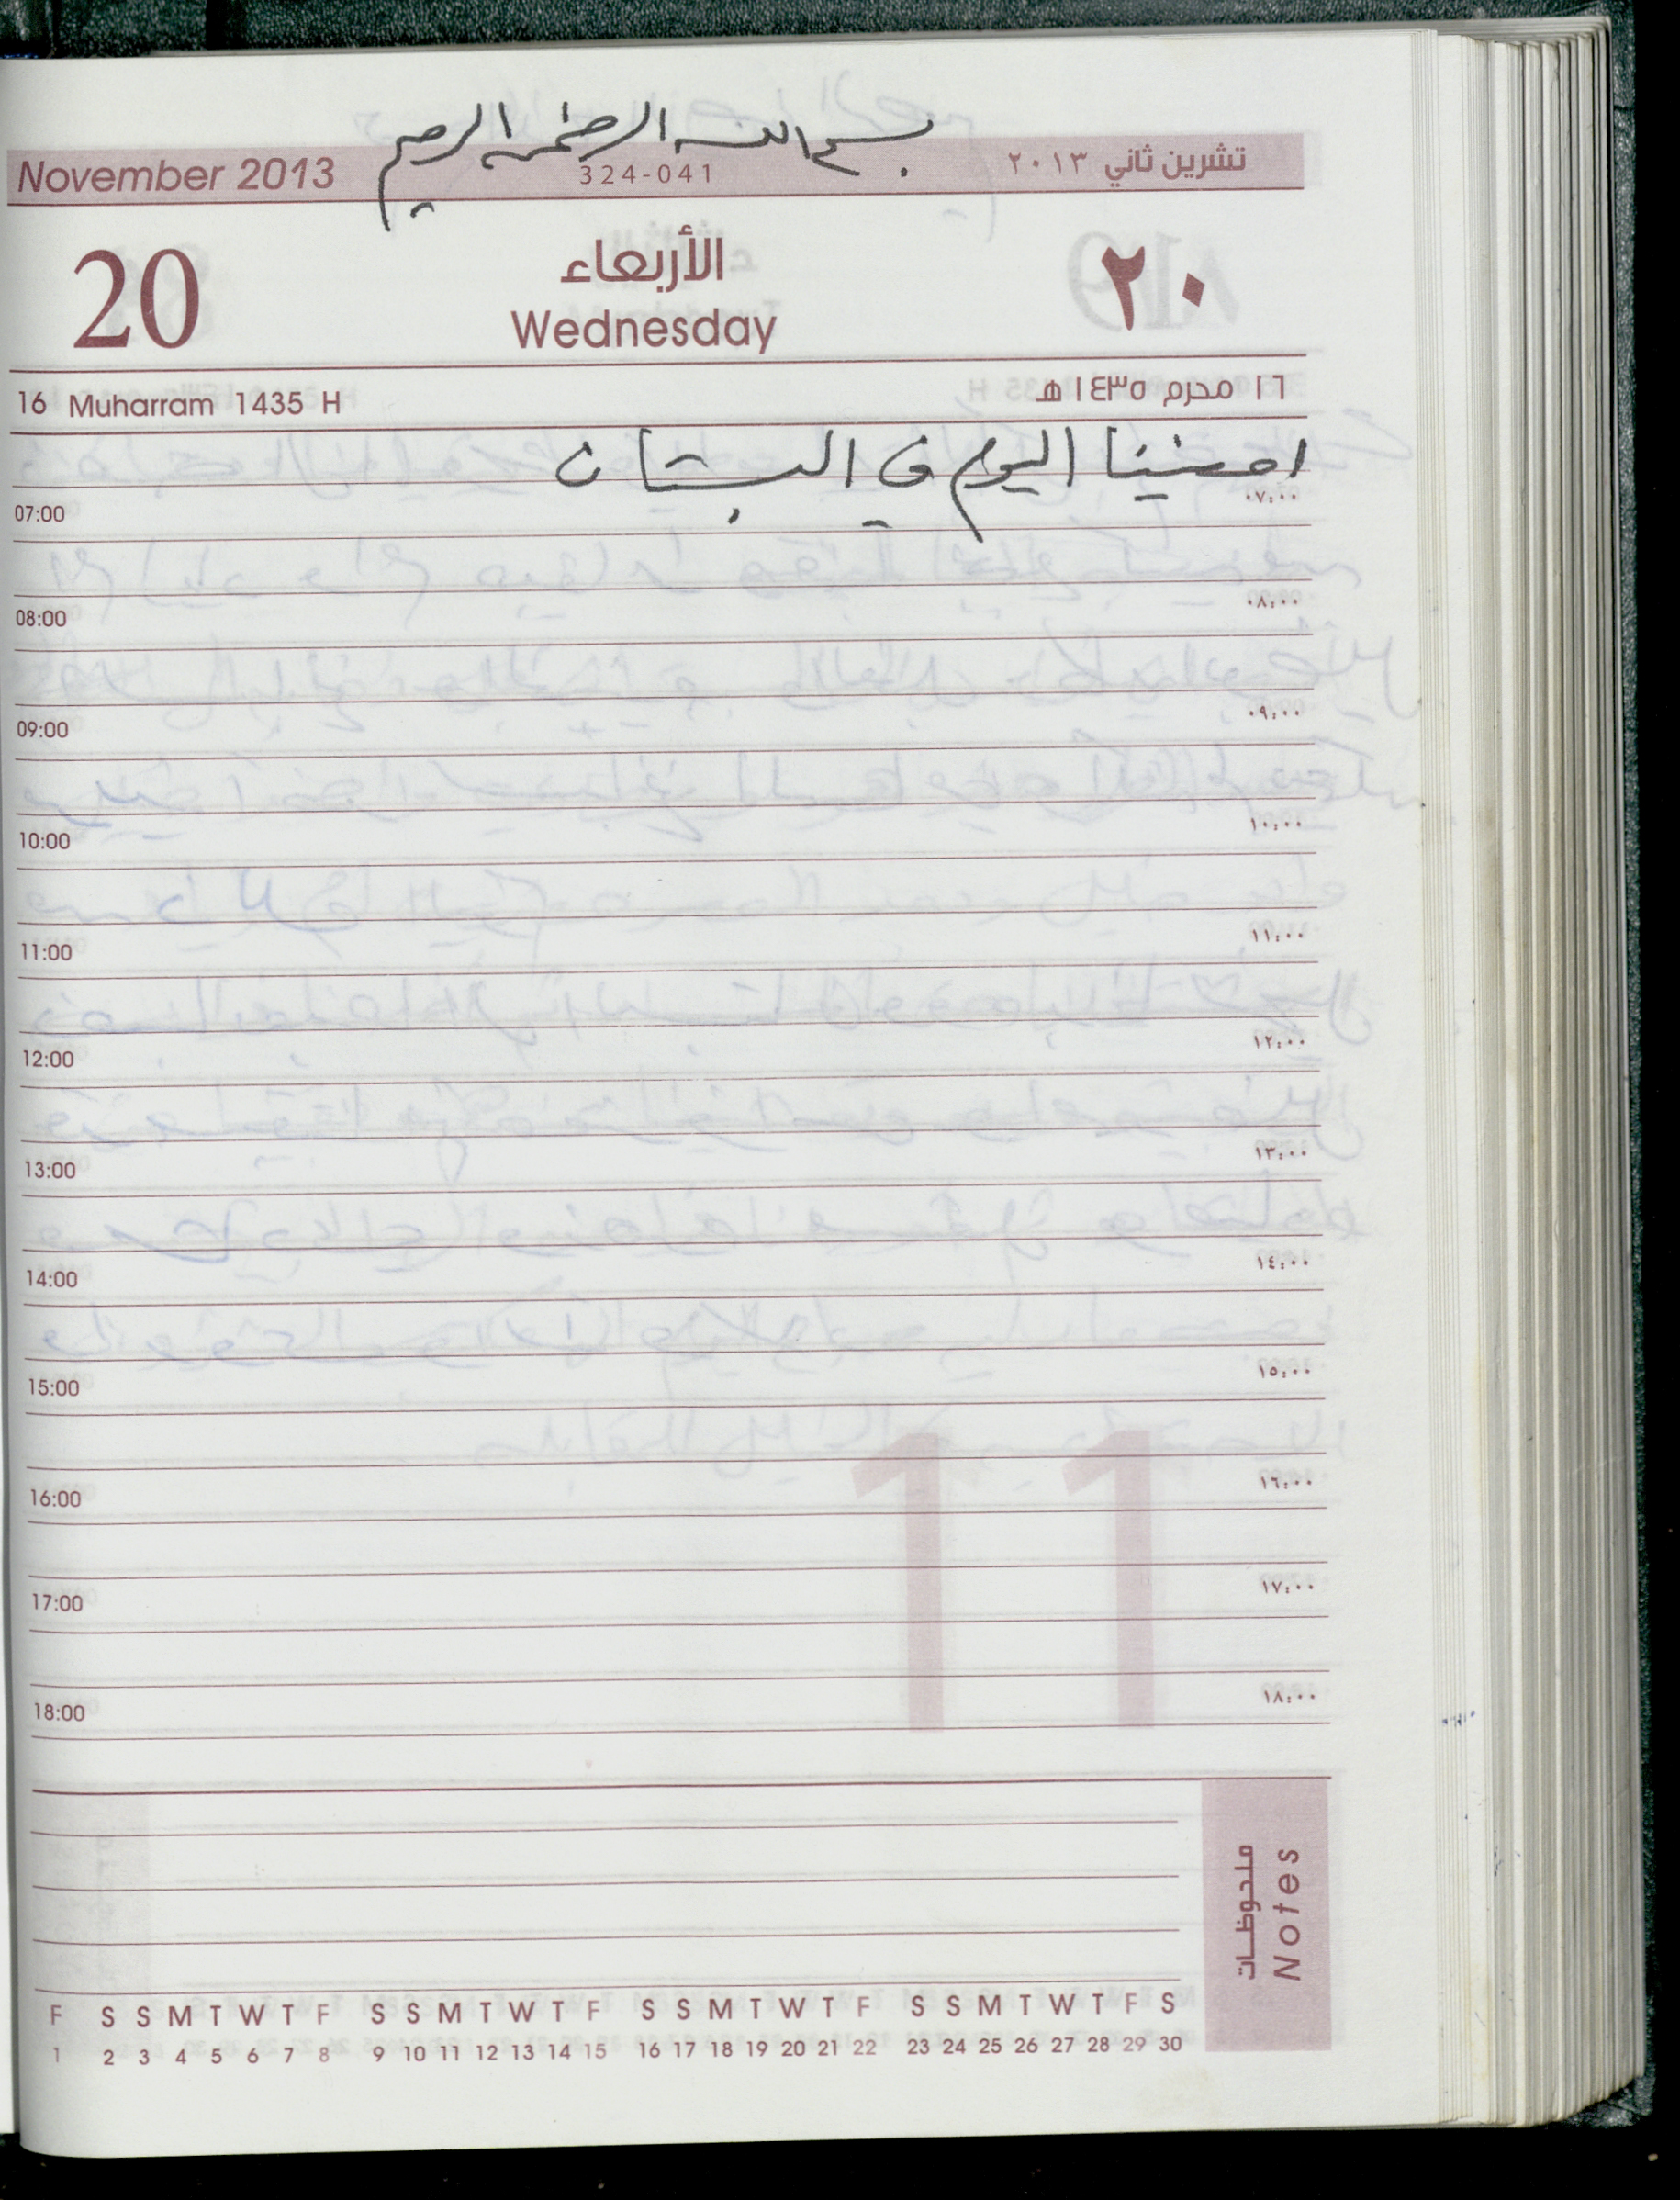 بسم الله الرحمن الرحيم
November 2013 324-041 تشرين ثاني ٢٠١٣
20 الأربعاء ٢٠
Wednesday
16 Muharram 1435 H ١٦ محرم ١٤٣٥ هـ
امضينا اليوم في البستان
07:00 ٠٧:٠٠
08:00 ٠٨:٠٠
09:00 ٠٩:٠٠
10:00 ١٠:٠٠
11:00 ١١:٠٠
12:00 ١٢:٠٠
13:00 ١٣:٠٠
14:00 ١٤:٠٠
15:00 ١٥:٠٠
16:00 ١٦:٠٠
17:00 ١٧:٠٠
18:00 ١٨:٠٠
11
ملحوظات
Notes
F S S M T W T F S S M T W T F S S M T W T F S S M T W T F S
1 2 3 4 5 6 7 8 9 10 11 12 13 14 15 16 17 18 19 20 21 22 23 24 25 26 27 28 29 30